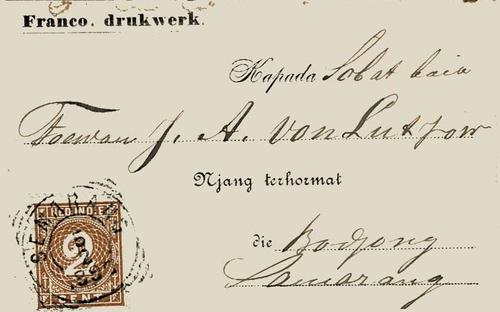 Franco. drukwerk.
Kapada Sobat baik
Toewan J. A. von Lutzow
Njang terhormat
die Bodjong
Samarang
NED. INDIE
SEMARANG
2
CENT